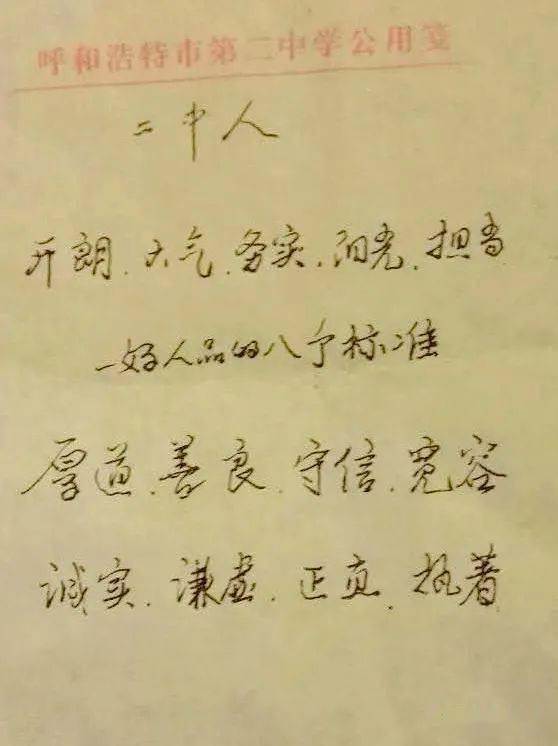 呼和浩特市第二中学公用笺
二中人
开朗、大气、务实、阳光、担当
—好人品的八个标准
厚道、善良、守信、宽容
诚实、谦虚、正直、执著